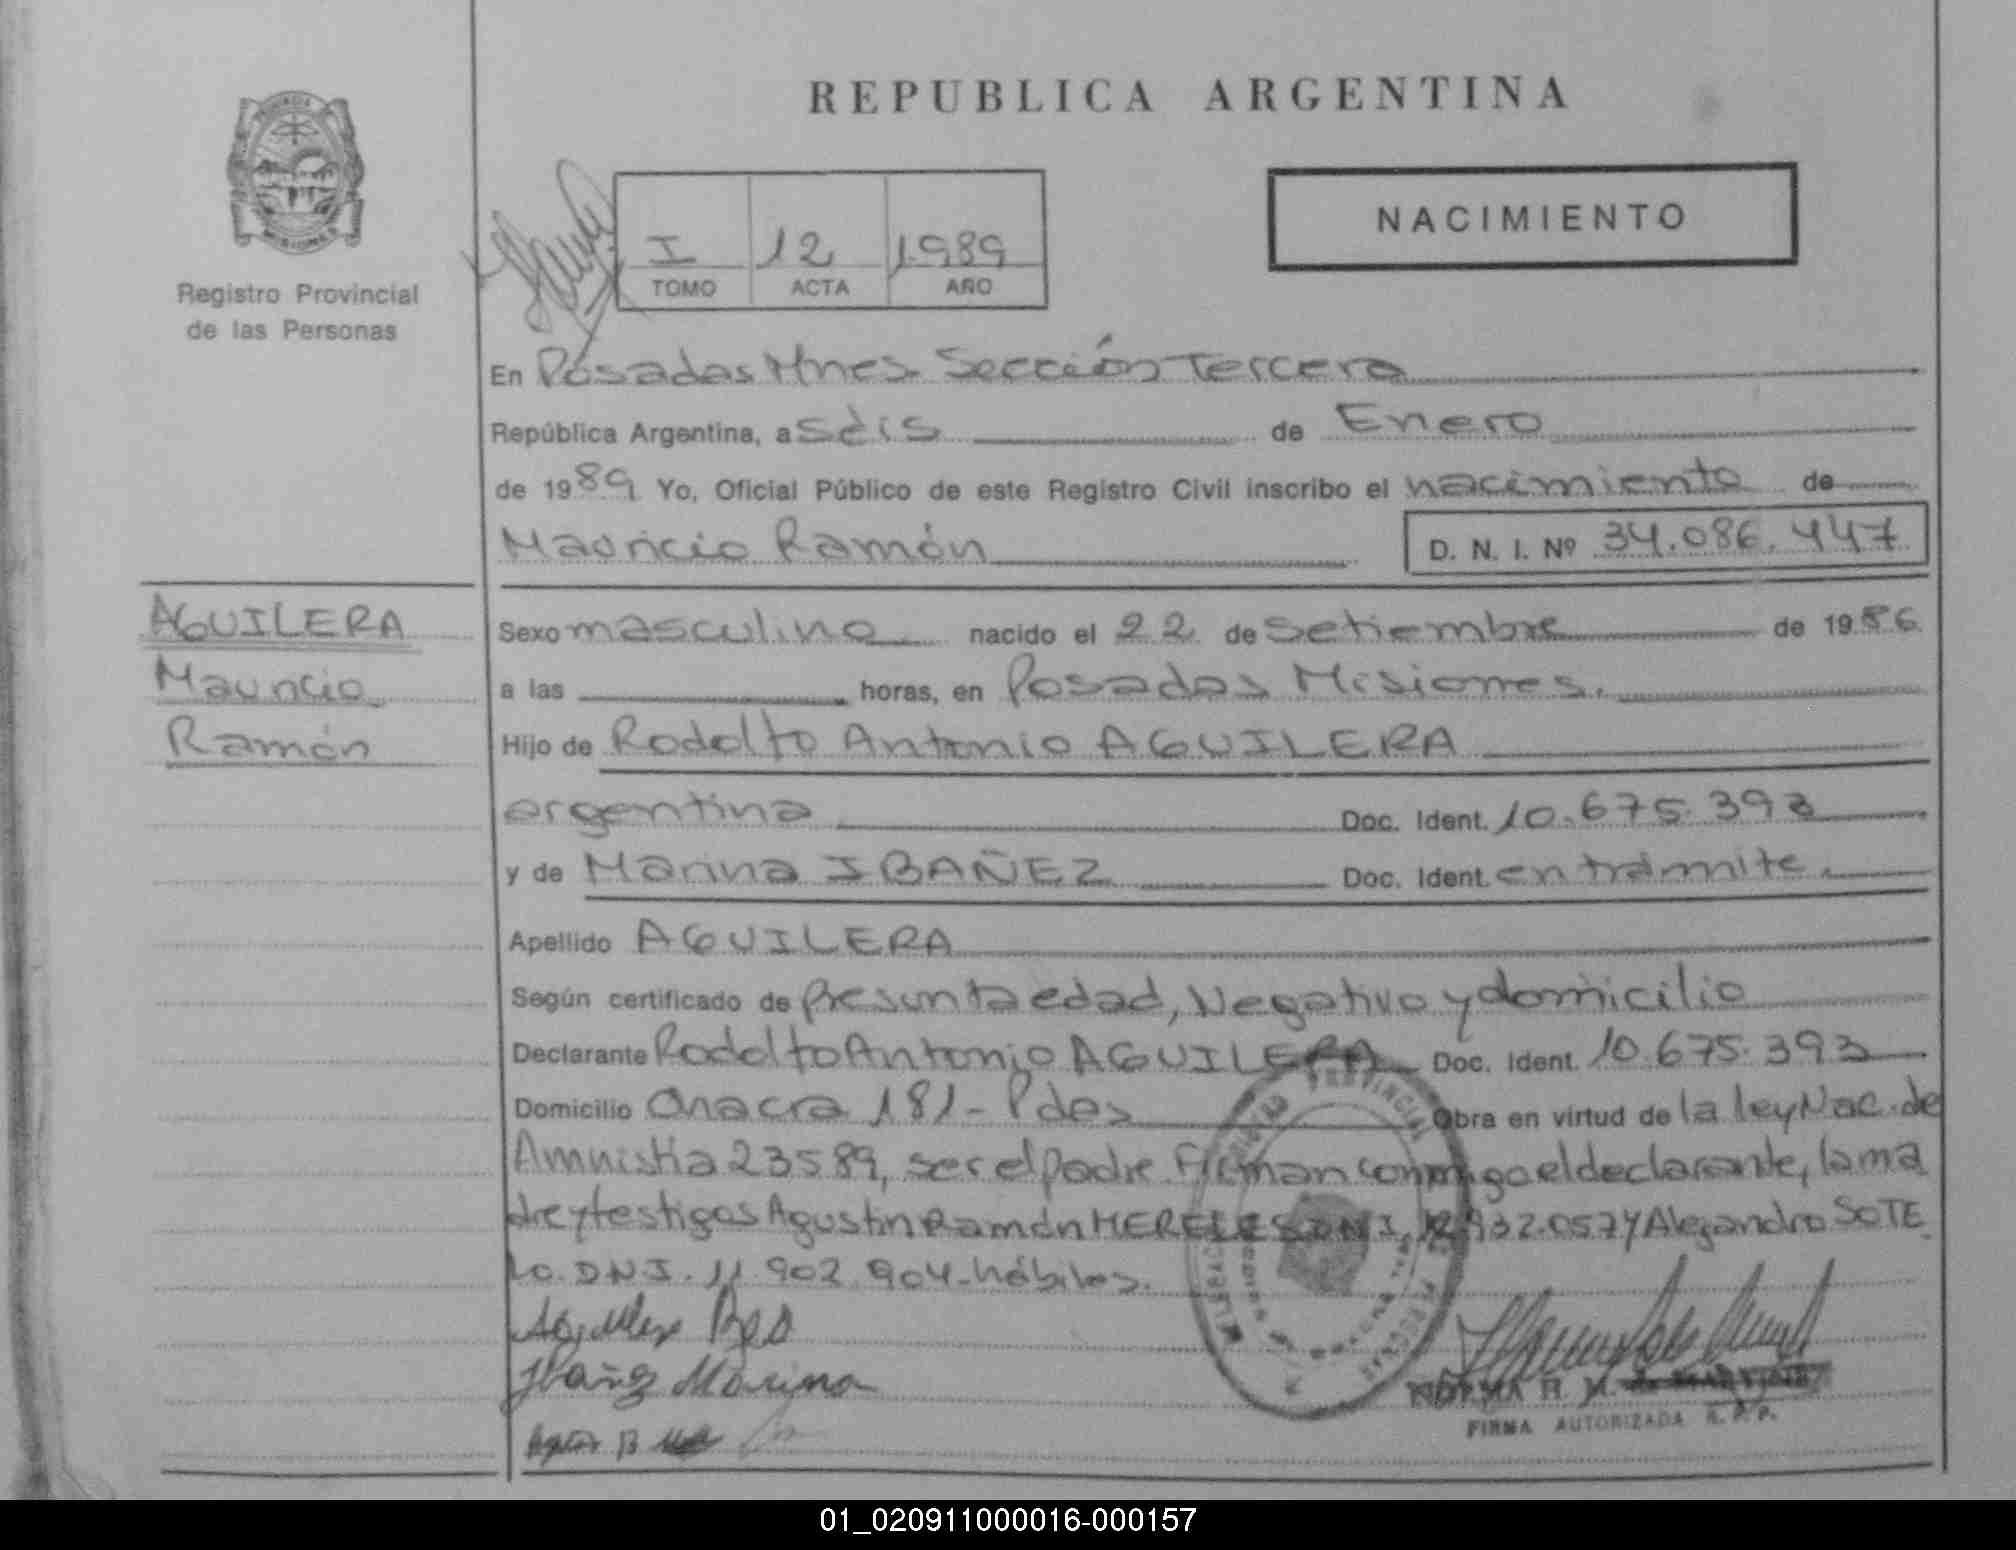 REPUBLICA ARGENTINA
NACIMIENTO
I 12 1989
TOMO ACTA AÑO
Registro Provincial
de las Personas
En Posadas Mnes Sección Tercera
República Argentina, a seis de Enero
de 1989 Yo, Oficial Público de este Registro Civil inscribo el nacimiento de
Mauricio Ramón D. N. I. Nº 34.086.447
AGUILERA
Mauricio
Ramón
Sexo masculino nacido el 22 de Setiembre de 1986
a las horas, en Posadas Misiones.
Hijo de Rodolfo Antonio AGUILERA
argentina Doc. Ident. 10.675.393
y de Marina IBAÑEZ Doc. Ident. en trámite.
Apellido AGUILERA
Según certificado de Presunta edad, Negativo y domicilio
Declarante Rodolfo Antonio AGUILERA Doc. Ident. 10.675.393
Domicilio 181 - Pdas Obra en virtud de la ley Nac. de
Amnistia 23589, ser el padre. Firman conmigo el declarante, la ma
dre y testigos Agustin Ramón MERELES DNI. 12.932.057 y Alejandro SOTE
LO. DNI. 11.902.904 - hábiles.
Ibañez Marina
NORMA H. M.
FIRMA AUTORIZADA R. P. P.
01_020911000016-000157